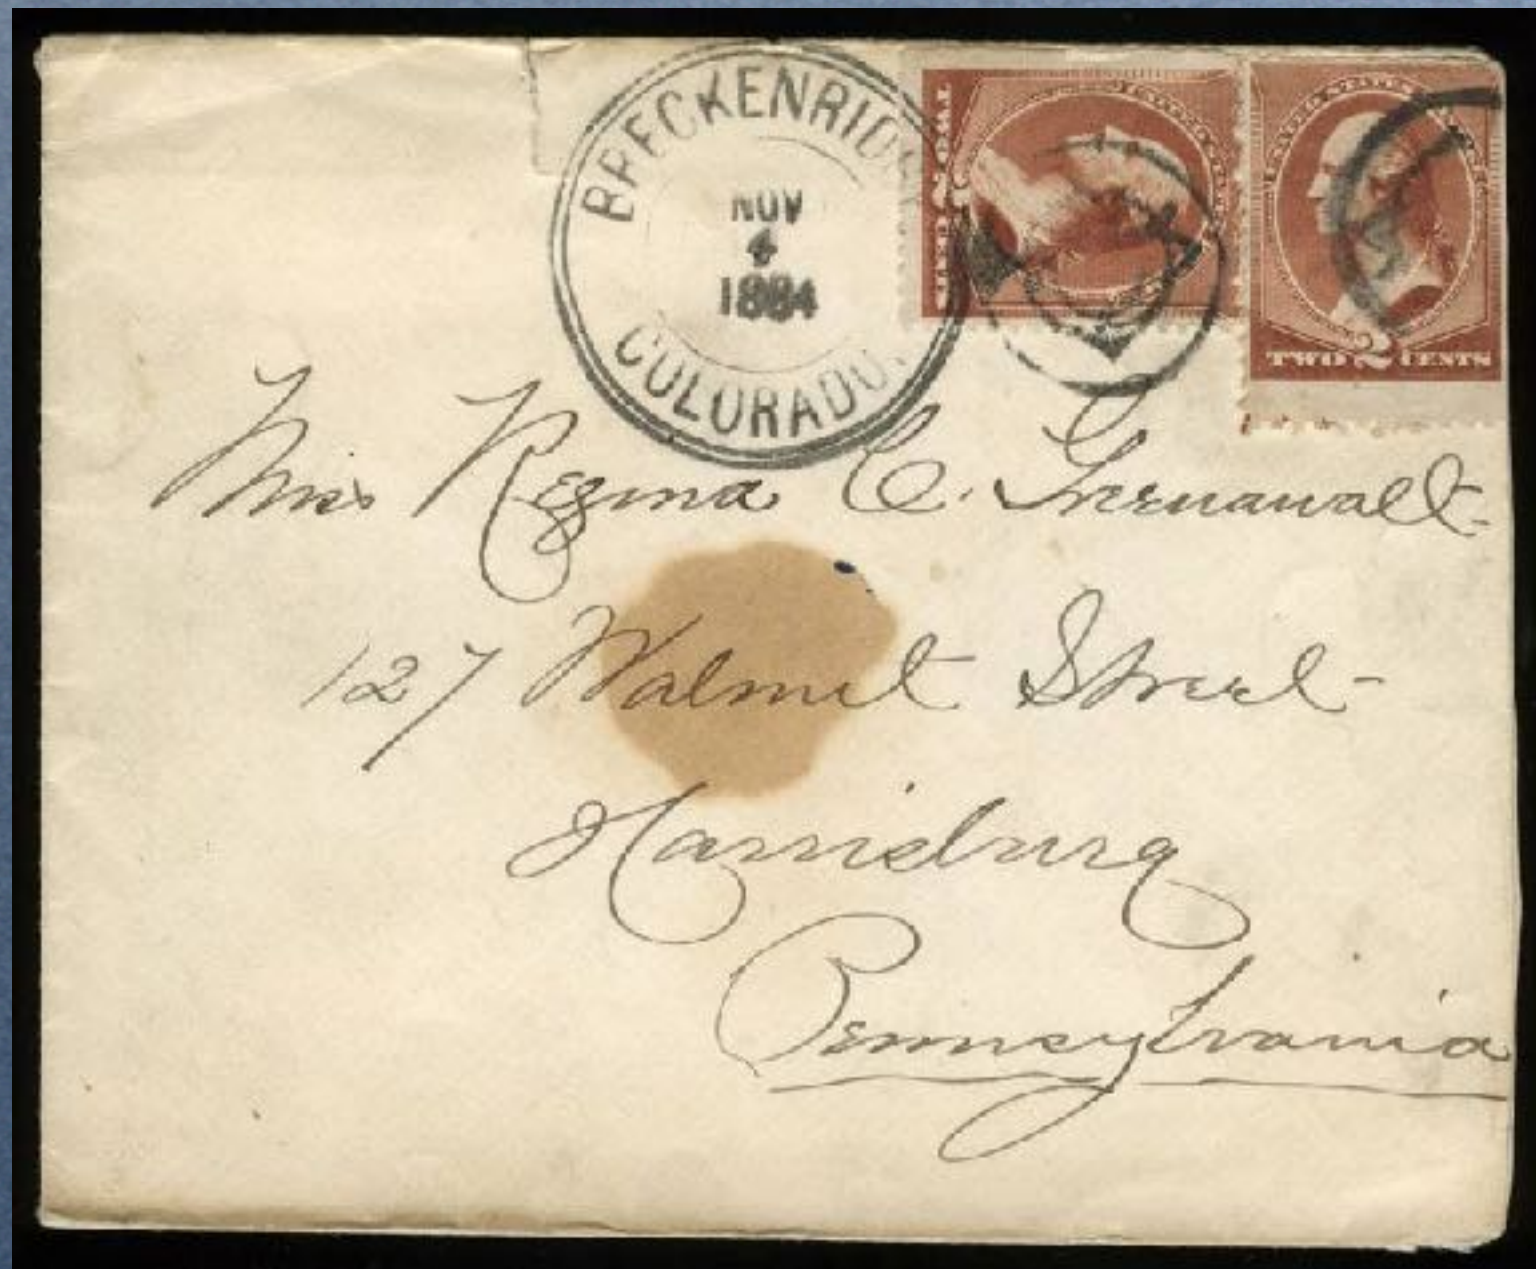 BRECKENRIDGE
NOV
4
1884
COLORADO.
TWO 2 CENTS
UNITED STATES
TWO 2 CENTS
Miss Regina C. Greenawalt
127 Walnut Street
Harrisburg
Pennsylvania